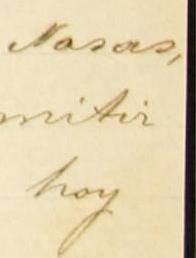 Nasas,
mitir
hoy